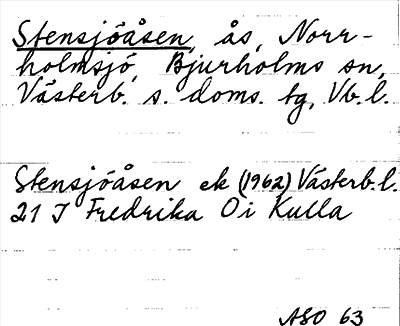 Stensjöåsen, ås, Norr-
holmsjö, Bjurholms sn,
Västerb. s. doms. tg, Vb. l.
Stensjöåsen ek (1962) Västerb. l.
21 J Fredrika O i Kulla
ASO 63